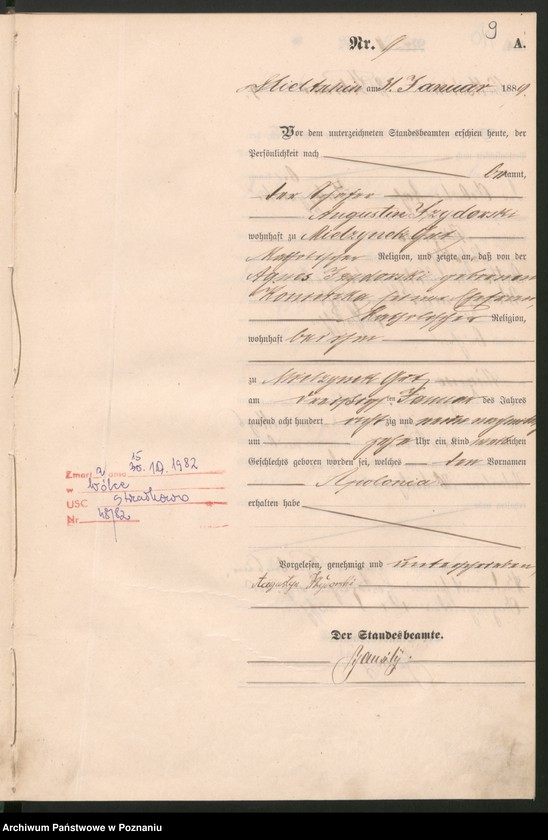 9
Nr. 9 A.
am 31. Januar 1889.
Vor dem unterzeichneten Standesbeamten erschien heute, der
Persönlichkeit nach
bekannt,
der
Augustin Szydorski
wohnhaft zu Mielzynek Gut
Katholischer Religion, und zeigte an, daß von der
Agnes Szydorski geborenen
seiner Ehefrau
Katholischer Religion,
wohnhaft bei ihm
zu Mielzynek Gut
am dreißigsten Januar des Jahres
tausend acht hundert achtzig und neun nachmittags
um Uhr ein Kind weiblichen
Geschlechts geboren worden sei, welches den Vornamen
Apolonia
erhalten habe
Vorgelesen, genehmigt und unterschrieben
Der Standesbeamte.
Zmarła dnia 15. 10. 1982
w
USC Strzałkowo
Nr 48/82
Archiwum Państwowe w Poznaniu